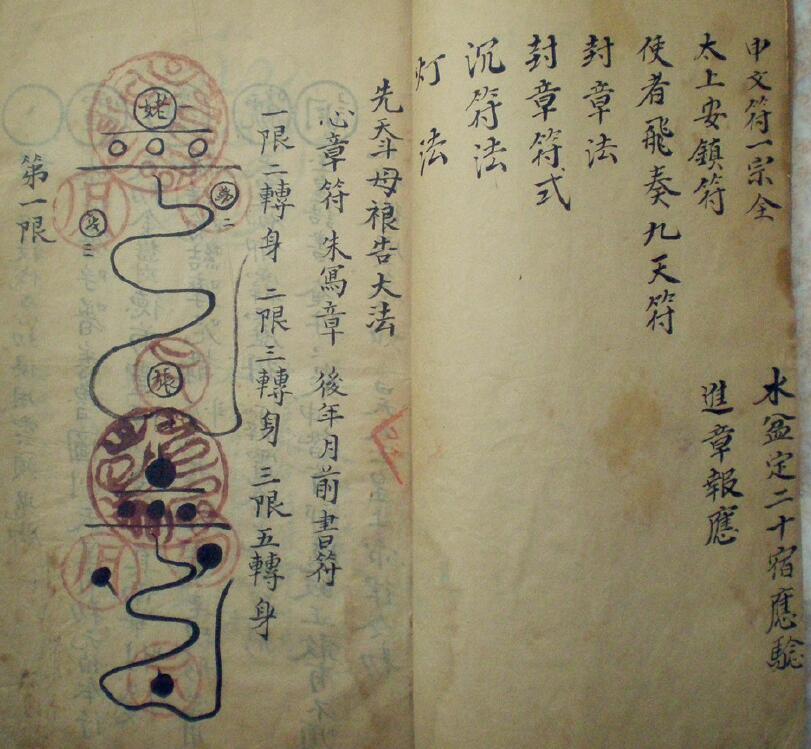 申文符一宗全
水盆定二十宿應驗
太上安鎮符
進章報應
使者飛奏九天符
封章法
封章符式
沉符法
灯法
先天斗母禳告大法
心章符 朱寫章 後年月前書符
一限二轉身 二限三轉身 三限五轉身
第一限
姥一
二
三